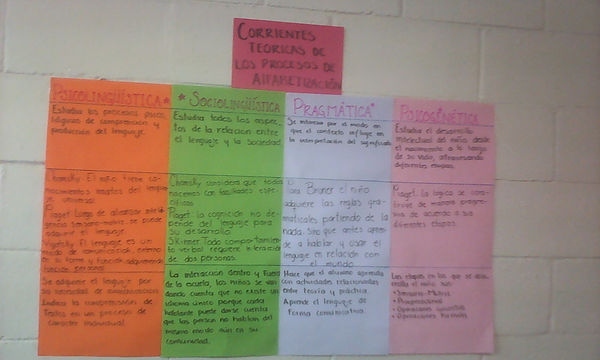 CORRIENTES
TEORICAS DE
LOS PROCESOS DE
ALFABETIZACIÓN
PSICOLINGÜÍSTICA
Estudia los procesos psico
lógicos de comprensión y
producción del lenguaje.
Chomsky. El niño tiene co-
nocimientos innatos del lengua
universal
Piaget Luego de alcanzar intelig
encia sensorio-motriz se puede
adquirir el lenguaje.
Vigotsky. El lenguaje es un
medio de comunicación, externo
de su forma y función adquiriendo
función personal
Se adquiere el lenguaje por
su necesidad de comunicación
Indica la comprensión de
Textos en un proceso de
carácter individual.
SOCIOLINGÜÍSTICA
Estudia todos los aspec-
tos de la relación entre
el lenguaje y la sociedad
Chomsky considera que todos
nacemos con facultades espe-
cíficas
Piaget La cognición no de-
pende del lenguaje para
su desarrollo.
Skinner Todo comportamien
to verbal requiere interacción
de dos personas.
La interacción dentro y fuera
de la escuela, los niños se van
dando cuenta que no existe un
idioma único porque cada
hablante puede darse cuenta
que las person no hablan del
mismo modo aún en su
comunidad.
PRAGMÁTICA
Se interesa por el modo en
que el contexto influye en
la interpretación del significado
Para Bruner el niño
adquiere las reglas gra-
maticales partiendo de la
nada. Sino que antes apren-
de a hablar y usar el
lenguaje en relación con
el mundo
Hace que el alumno aprenda
con actividades relacionantes
entre teoría y práctica.
Aprende el lenguaje de
forma comunicativa.
PSICOGENÉTICA
Estudia el desarrollo
intelectual del niño desde
el nacimiento a lo largo
de su vida, atravesando
diferentes etapas.
Piaget. La lógica se cons-
truye de manera progre-
siva de acuerdo a sus
diferentes etapas.
Las etapas en las que se desa-
rrolla el niño son:
• Sensorio-Motriz
• Preoperacional
• Operaciones concretas
• Operaciones formales